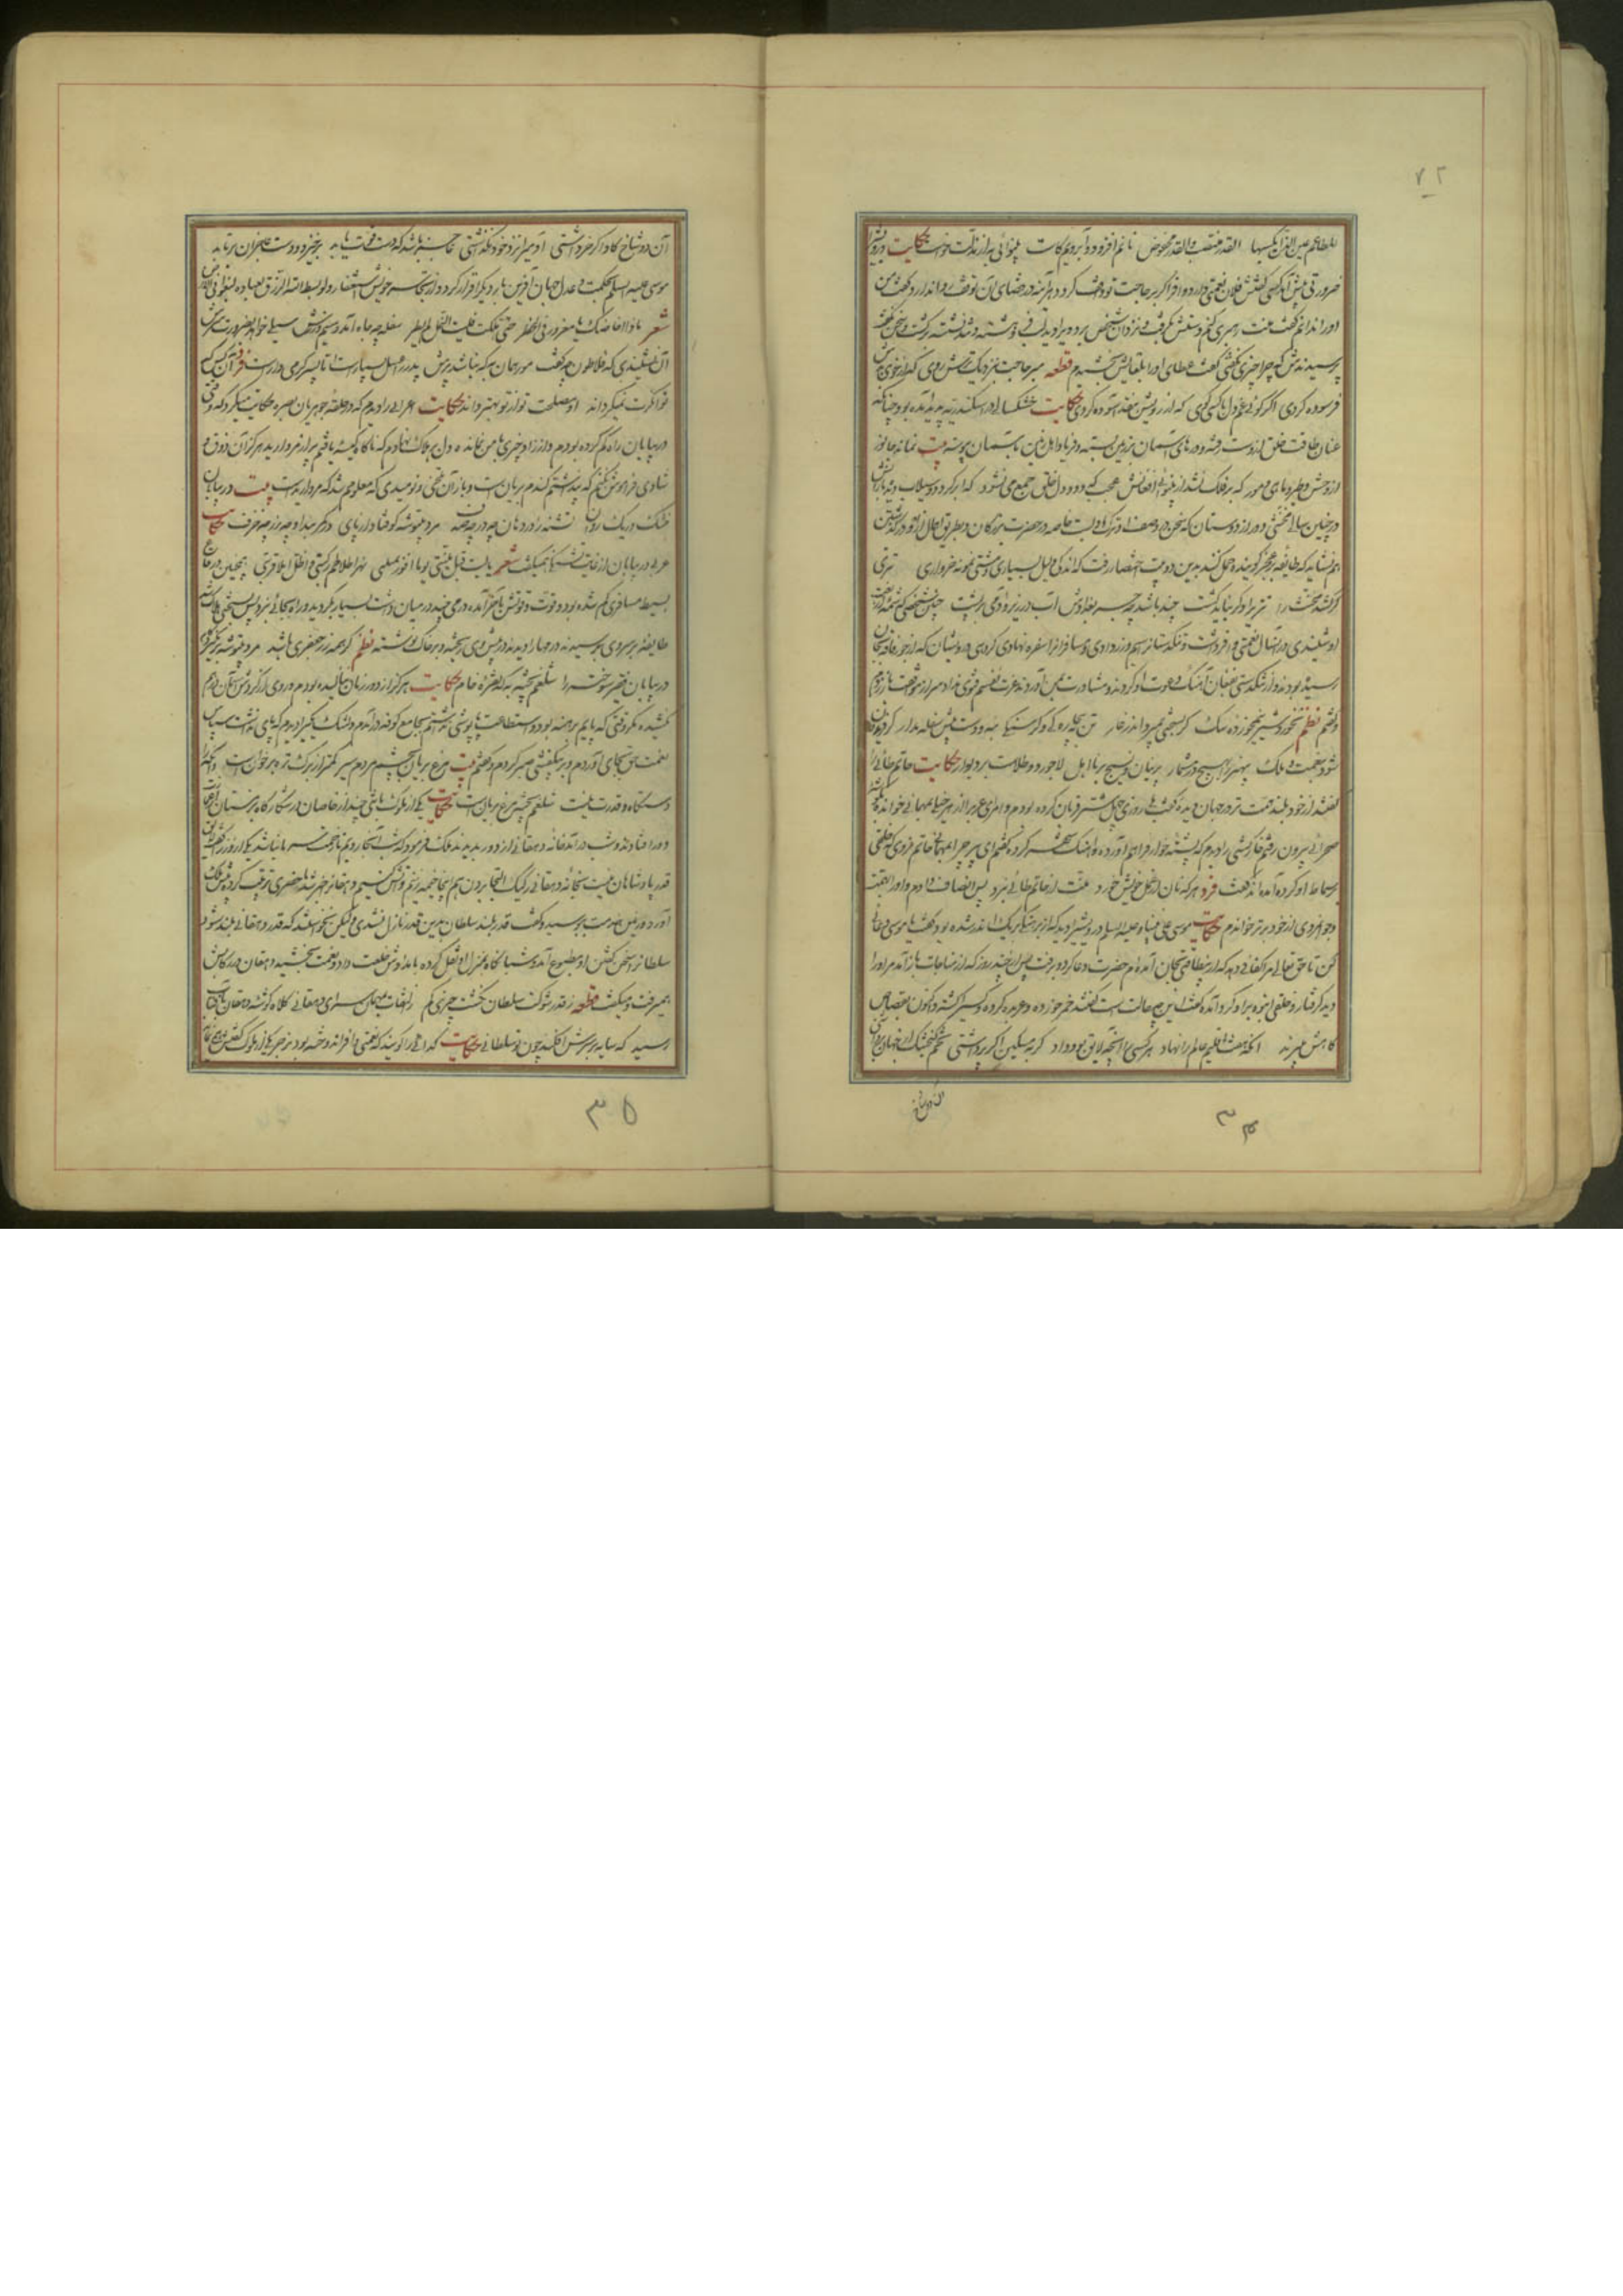 ۷۲
المطاعم حین الذل یکسبها القدر منتصب والقدر مخفوض نانم افزود و آبرویم کاست بینوائی به از مذلت خواست حکایت درویشی را
ضرورتی پیش آمد کسی گفتش فلان نعمتی دارد وافر اگر بر حاجت تو واقف گردد هر آینه در قضای آن توقف روا ندارد گفت من
او را ندانم گفت منت رهبری کنم دستش بگرفت و نزد آن شخص برد ویرا دید لب فروهشته و تند نشسته برگشت و سخن نگفت
پرسیدندش که چرا چیزی نگفتی گفت عطای او را بلقایش بخشیدم قطعه مبر حاجت بنزدیک ترش روی که از خوی بدش
فرسوده گردی اگر گوئی غم دل با کسی گوی که از رویش بنقد آسوده گردی حکایت خشکسالی در اسکندریه پدید آمده بود چنانکه
عنان طاقت خلق از دست رفته و درهای آسمان بر زمین بسته و فریاد اهل زمین بآسمان پیوسته بیت نماند جانور
از وحش و طیر و ماهی و مور که بر فلک نشد از بینوائی افغانش عجب که دود دل خلق جمع می نشود که ابر گردد و سیلاب دیده بارانش
در چنین سالی مخنثی دور از دوستان که سخن در وصف او ترک ادبست خاصه در حضرت بزرگان و بطریق اهمال از آن در گذشتن
هم نشاید که طایفه بر عجز گوینده حمل کنند بدین دو بیت اختصار رفت که اندکی دلیل بسیاری و مشتی نمونه خرواری تتری
گر کشد مخنث را تتریرا دگر نباید کشت چند باشد چو جسر بغدادش آب در زیر و آدمی بر پشت چنین شخصی که شمه از نعت
او شنیدی در آن سال نعمتی وافر داشت و تنگدستانرا سیم و زر دادی و مسافرانرا سفره نهادی گروهی درویشان که از جور فاقه بجان
رسیده بودند و از تنگدستی بفغان آهنگ دعوت او کردند و مشاورت بمن آوردند عزت نفسم فتوی نداد سر از موافقت باز زدم
و گفتم نظم نخورد شیر نیمخورده سگ گر بسختی بمیرد اندر غار تن بیچارگی و گرسنگی بنه و دست پیش سفله مدار گر فریدون
شود بنعمت و ملک بی هنر را بهیچ کس مشمار پرنیان و نسیج بر نا اهل لاجورد و طلاست بر دیوار حکایت حاتم طائی را
گفتند از خود بلند همت تر در جهان دیده گفت بلی روزی چهل شتر قربان کرده بودم و امرای عرب را از هر خیل بمهمانی خوانده
صحرائی بیرون رفتم خارکشی را دیدم که پشته خوار فراهم آورده و آهنگ شهر کرده گفتم ای پیر چرا بمهمانی حاتم نروی که خلقی
بر سماط او گرد آمده اند گفت فرد هر که نان از عمل خویش خورد منت از حاتم طائی نبرد پس انصاف دادم و او را بهمت
و جوانمردی از خود برتر خواندم حکایت موسی علی نبینا و علیه السلام درویشی را دید که از برهنگی بریگ اندر شده بود گفت یا موسی دعائی
کن تا حق تعالی مرا کفافی دهد که از بیطاقتی بجان آمده ام حضرت دعا کرد و برفت پس از چند روز که از مناجات باز آمد مر او را
دید گرفتار و خلقی انبوه بر او گرد آمده گفت این چه حالت است گفتند خمر خورده و عربده کرده و کسی را کشته و اکنون بقصاص
گاهش میبرند آنکه هفت اقلیم عالم را نهاد هر کسی را آنچه لایق بود داد گربه مسکین اگر پر داشتی تخم گنجشک از جهان برداشتی
آن دو شاخ
۳۴
آن دو شاخ گاو اگر خر داشتی آدمی را نزد خود نگذاشتی عاجز باشد که دست قوت یابد برخیزد و دست عاجزان برتابد
موسی علیه السلام بحکمت و عدل جهان آفرین بار دیگر اقرار کرد و از تجاسر خویش استغفار و لو بسط الله الرزق لعباده لبغوا فی الارض
شعر ماذا اخاضک یا مغرور فی الخطر حتی هلکت فلیت النمل لم یطر سفله چو جاه آمد و سیم و زرش سیلی خواهد بضرورت سرش
آن نشنیدی که فلاطون چه گفت مور همان به که نباشد پرش پدر را عسل بسیار است اما پسر گرمی دار است فرد آن کس که
توانگرت نمیگرداند او مصلحت تو از تو بهتر داند حکایت اعرابی را دیدم که در حلقه جوهریان بصره حکایت میکرد که وقتی
در بیابان راه گم کرده بودم و از زاد چیزی با من نمانده و دل بر هلاک نهادم که ناگاه کیسه یافتم پر از مروارید هرگز آن ذوق و
شادی فراموش نکنم که پنداشتم گندم بریان است و باز آن تلخی و نومیدی که معلومم شد که مروارید است بیت در بیابان
خشک و ریگ روان تشنه را در دهان چه در چه صدف مرد بیتوشه کو فتاد از پای در کمربند او چه زر چه خزف حکایت
عربی در بیابان از غایت تشنگی میگفت شعر یا لیت قبل منیتی یوما افوز بمنیتی نهرا تلاطم رکبتی و اظل املا قربتی همچنین در قاع
بسیط مسافری گم شده بود و قوت و قوتش بآخر آمده و درمی چند در میان داشت بسیار بگردید و راه بجائی نبرد پس بسختی هلاک شد
طایفه بر سر وی برسیدند درمها را دیدند در پیش روی ریخته و بر خاک نوشته نظم گر همه زر جعفری باشد مرد بیتوشه بر نگیرد گام
در بیابان فقیر سوخته را شلغم پخته به که نقره خام حکایت هرگز از دور زمان ننالیده بودم و روی از گردش آسمان در هم
نکشیده مگر وقتی که پایم برهنه بود و استطاعت پاپوشی نداشتم بجامع کوفه در آمدم دلتنگ یکی را دیدم که پای نداشت سپاس
نعمت حق بجای آوردم و بر بیکفشی صبر کردم و گفتم بیت مرغ بریان بچشم مردم سیر کمتر از برگ تره بر خوان است و آنکه را
دستگاه و قدرت نیست شلغم پخته مرغ بریان است حکایت یکی از ملوک با تنی چند از خاصان در شکارگاه بزمستان از عمارت
دور افتادند و شب در آمد خانه دهقانی از دور بدیدند ملک فرمود که شب آنجا رویم تا زحمت سرما نباشد یکی از وزرا گفت لایق
قدر پادشاهان نیست بخانه دهقانی رکیک التجا بردن هم اینجا خیمه زنیم و آتش کنیم دهقانرا خبر شد ما حضری ترتیب کرد و پیش ملک
آورد و زمین خدمت ببوسید و گفت قدر بلند سلطان بدین قدر نازل نشدی ولیکن نخواستند که قدر دهقانی بلند شود
سلطانرا سخن گفتن او مطبوع آمد و شبانگاه بمنزل او نقل کرده بامدادش خلعت داد و نعمت بخشید دهقان در رکابش
همیرفت و میگفت قطعه ز قدر و شوکت سلطان نگشت چیزی کم از التفات بمهمان سرای دهقانی کلاه گوشه دهقان بآفتاب
رسید که سایه بر سرش افکند چون تو سلطانی حکایت گدائی را گویند که نعمتی وافر اندوخته بود
۳۵